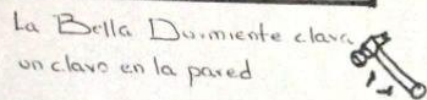 La Bella Durmiente clava
un clavo en la pared